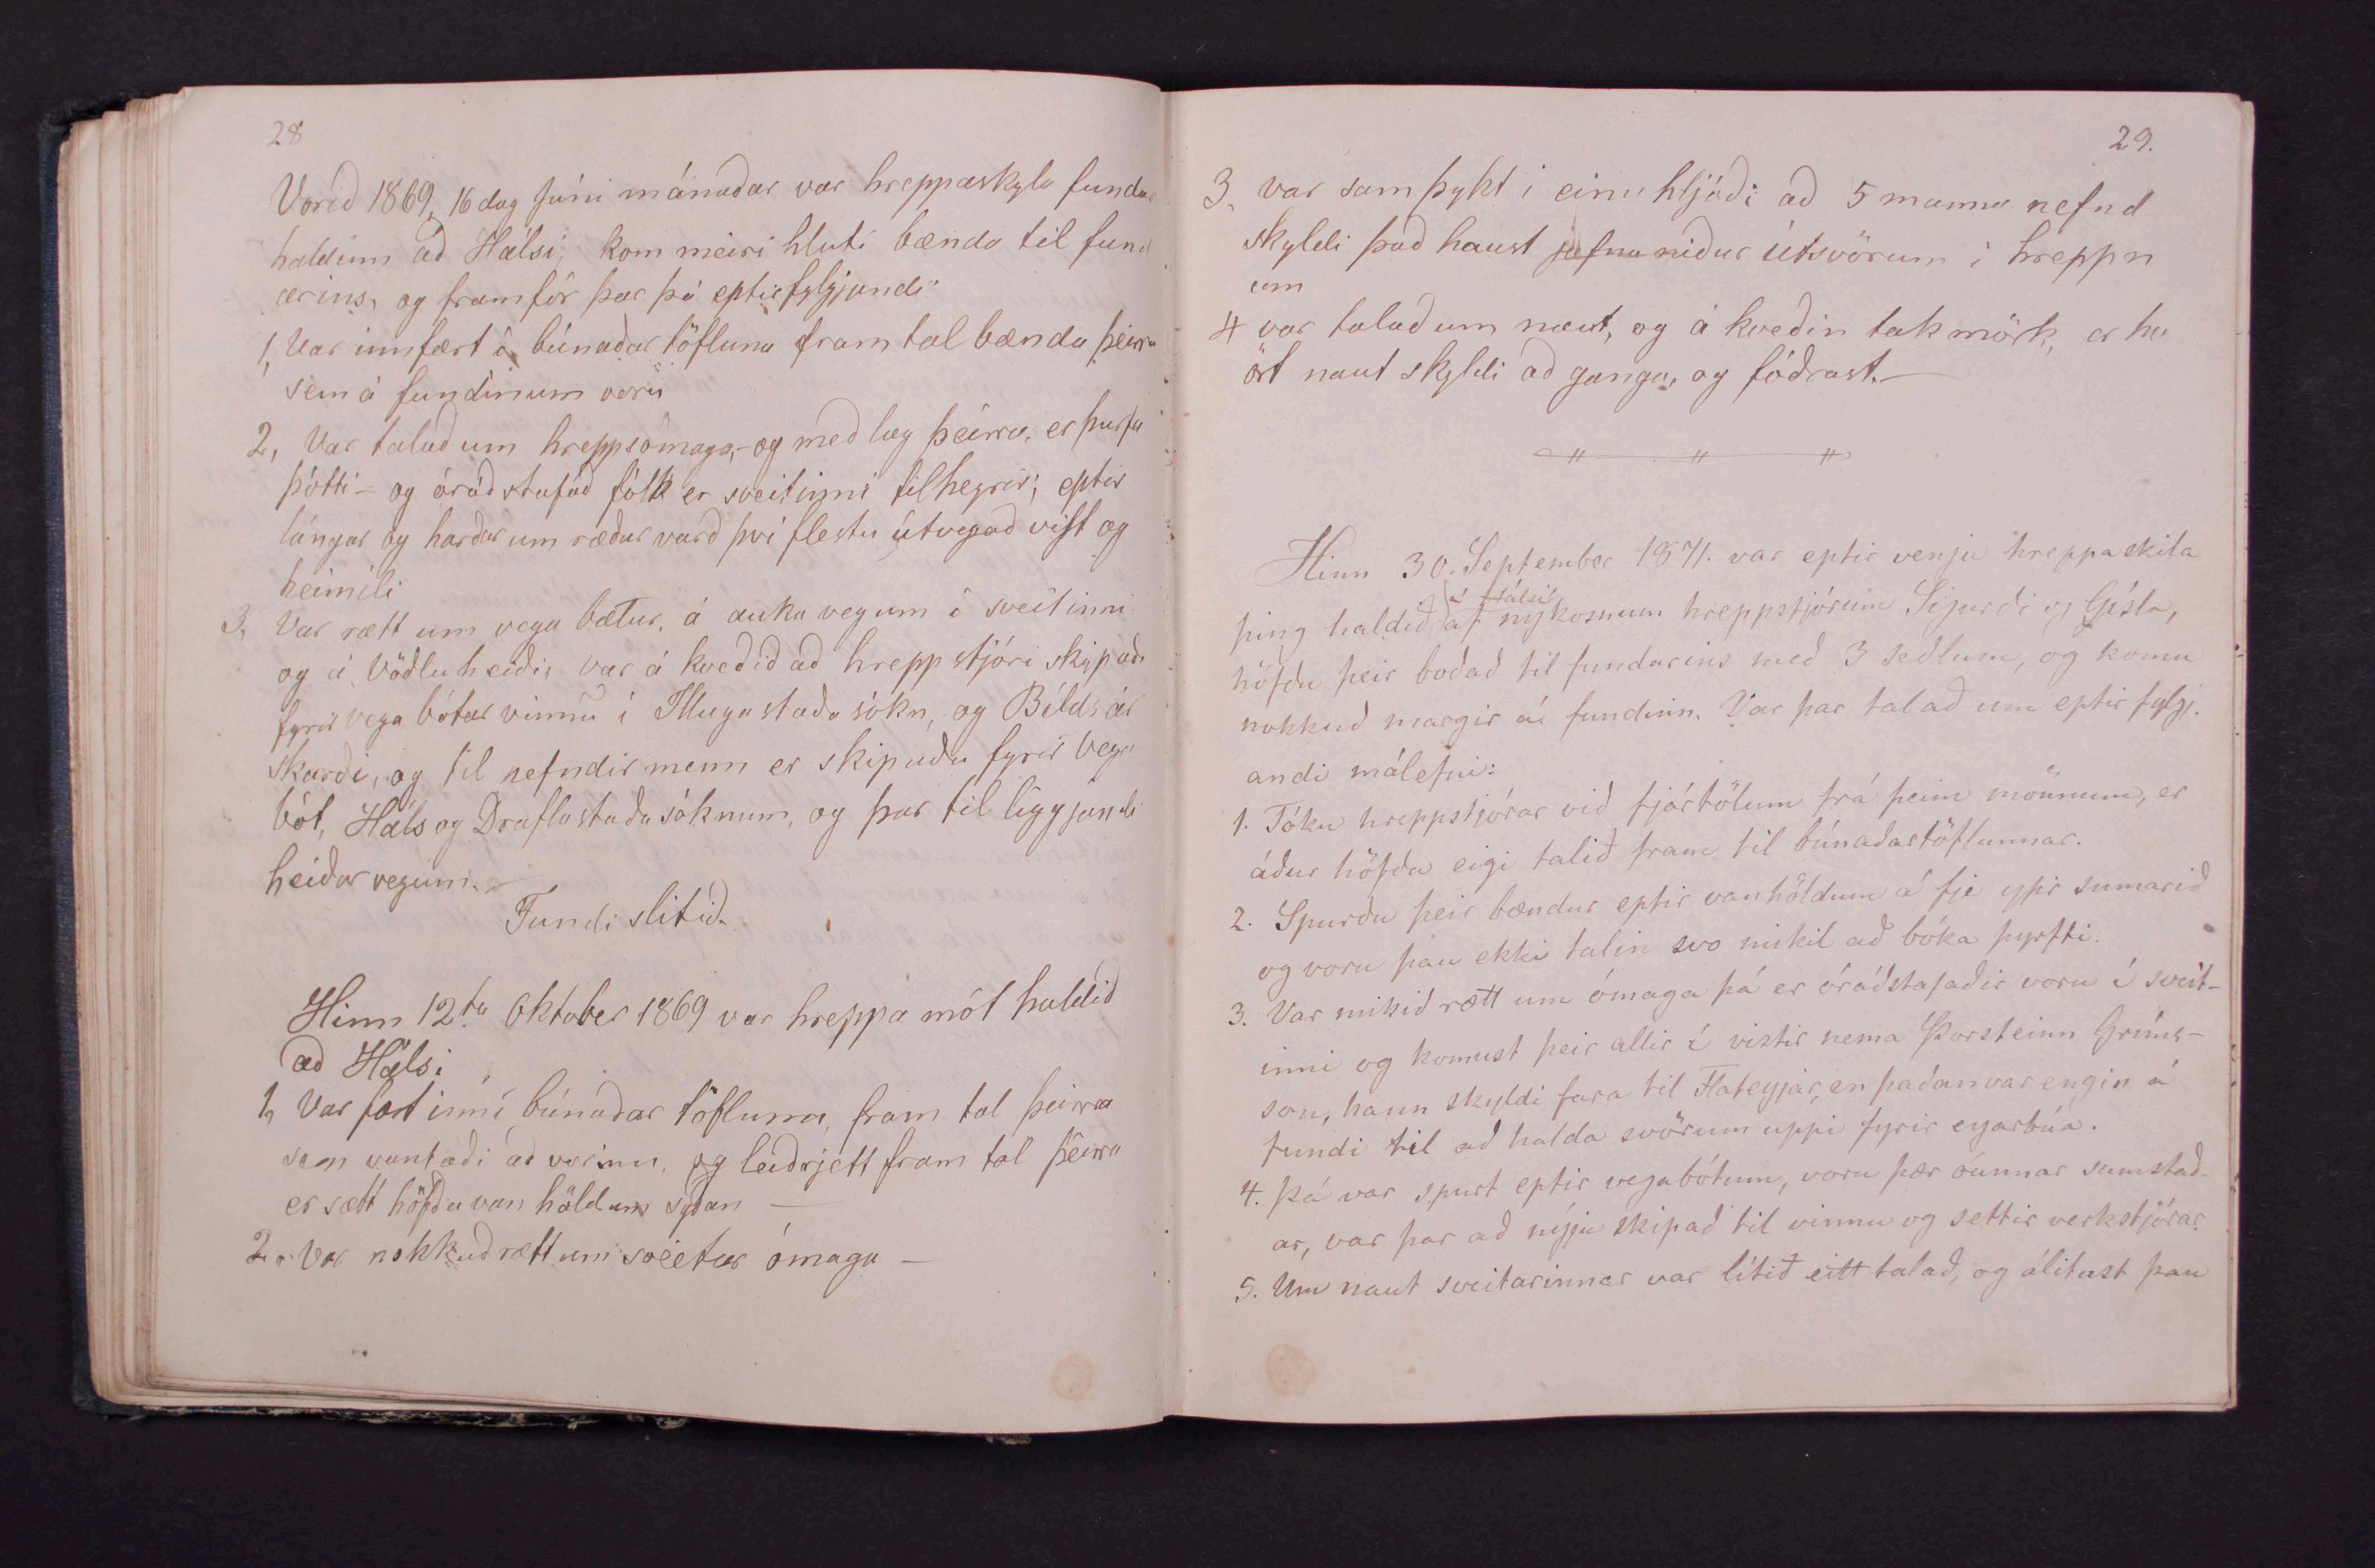 28
Vorið 1869, 16 dag Júni mánaðar var hreppaskyla fundur
haldinn að Hálsi, kom meiri hluti bænda til fund
arins, og framfór þar þá eptirfylgjandi
1, Var innfært á búnaðar töfluna framtal bænda þeirra
sem á fundinum voru
2, Var talað um hreppsómaga,- og með lag þeirra, er þurfa
þótti - og óráðstafað fólk er sveitinni tilheyrir; eptir
lángar og harðar um ræður varð því flestu útvegað vist og
heimili
3, Var rætt um vega bætur, á auka vegum í sveitinni
og á Vöðluheiði, var á kveðið að hreppstjóri skipaði
fyrir vega bótar vinnu í Illugastaða sókn, og Bíldsár
skarði, og til nefndir menn er skipuðu fyrir vega
bót, Háls og Draflastaða sóknum, og þar til liggjandi
heiðar vegum.
Fundi slitið.
Hinn 12ta Oktober 1869 var hreppa mót haldið
að Hálsi
1, Var fært inní búnaðar töfluna, fram tal þeirra
sem vantaði að vorinu, og leiðrjett fram tal þeirra
er sætt höfðu van höldum syðan —
2. Var nokkuð rætt um sveitar ómaga —
29.
3, var sam þykt i einu hljóði að 5 manna nefnd
skyldi það haust jafna niður útsvörum i hreppn
um
4 var talað um naut, og á kveðin tak mörk, er hv
ört naut skyldi að ganga, og fóðrast.—
Hinn 30. September 1871. var eptir venju hreppaskila
á Hálsi
þing haldið af nýkosnum hreppstjórum Sigurði og Gísla,
höfðu þeir boðað til fundarins með 3 seðlum, og komu
nokkuð margir á fundinn. Var þar talað um eptir fylgj.
andi málefni:
1. Tóku hreppstjórar við fjártölum frá þeim mönnum, er
áður höfðu eigi talið fram til búnaðartöflunnar.
2. Spurðu þeir bændur eptir vanhöldum á fje yfir sumarið
og voru þau ekki talin svo mikil að bóka þyrfti.
3. Var mikið rætt um ómaga þá er óráðstafaðir voru í sveit-
inni og komust þeir allir í vistir nema Þorsteinn Gríms-
son, hann skyldi fara til Flateyjar, en þaðan var engin á
fundi til að halda svörum uppi fyrir eyarbúa.
4. Þá var spurt eptir vegabótum, voru þær óunnar sumstað-
ar, var þar að nýju skipað til vinnu og settir verkstjórar.
5. Um naut sveitarinnar var lítið eitt talað, og álitust þau